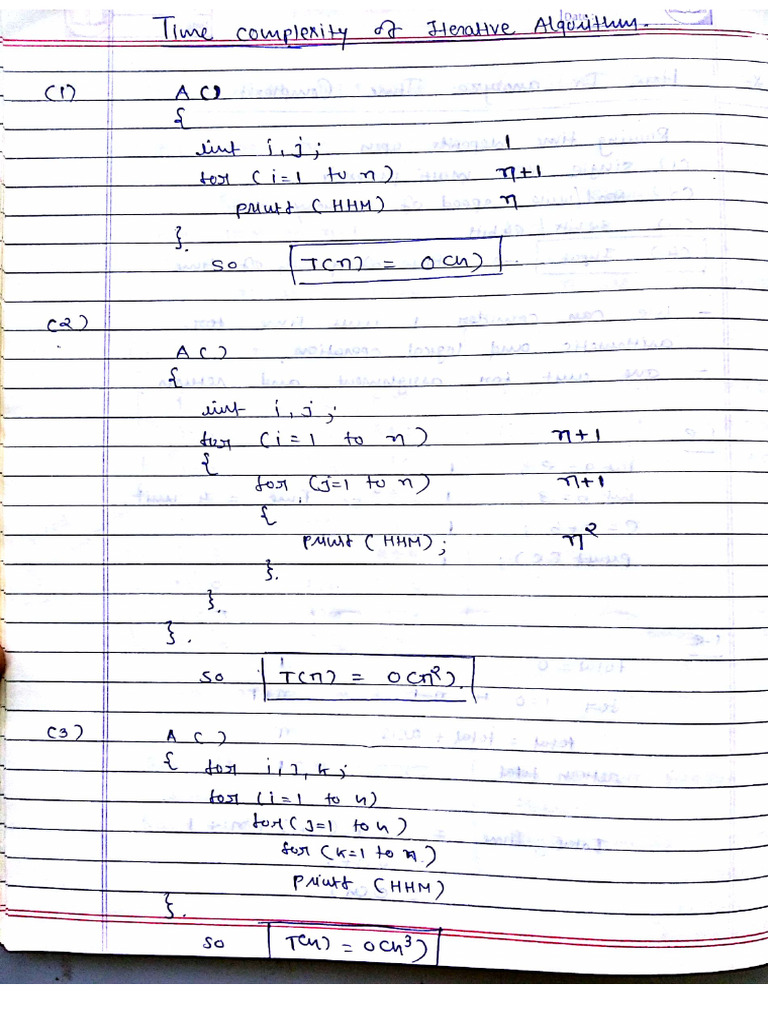 Time complexity of Iterative Algorithm.
(1) A()
{
int i, j; 1
for (i=1 to n) n+1
print (HHM) n
}.
so T(n) = O(n)
(2)
A()
{
int i, j;
for (i=1 to n) n+1
{
for (j=1 to n) n+1
{
print (HHM); n²
}.
}.
}.
so T(n) = O(n²).
(3) A()
{ for i, j, k;
for (i=1 to n)
for (j=1 to n)
for (k=1 to n)
print (HHM)
}.
so T(n) = O(n³)